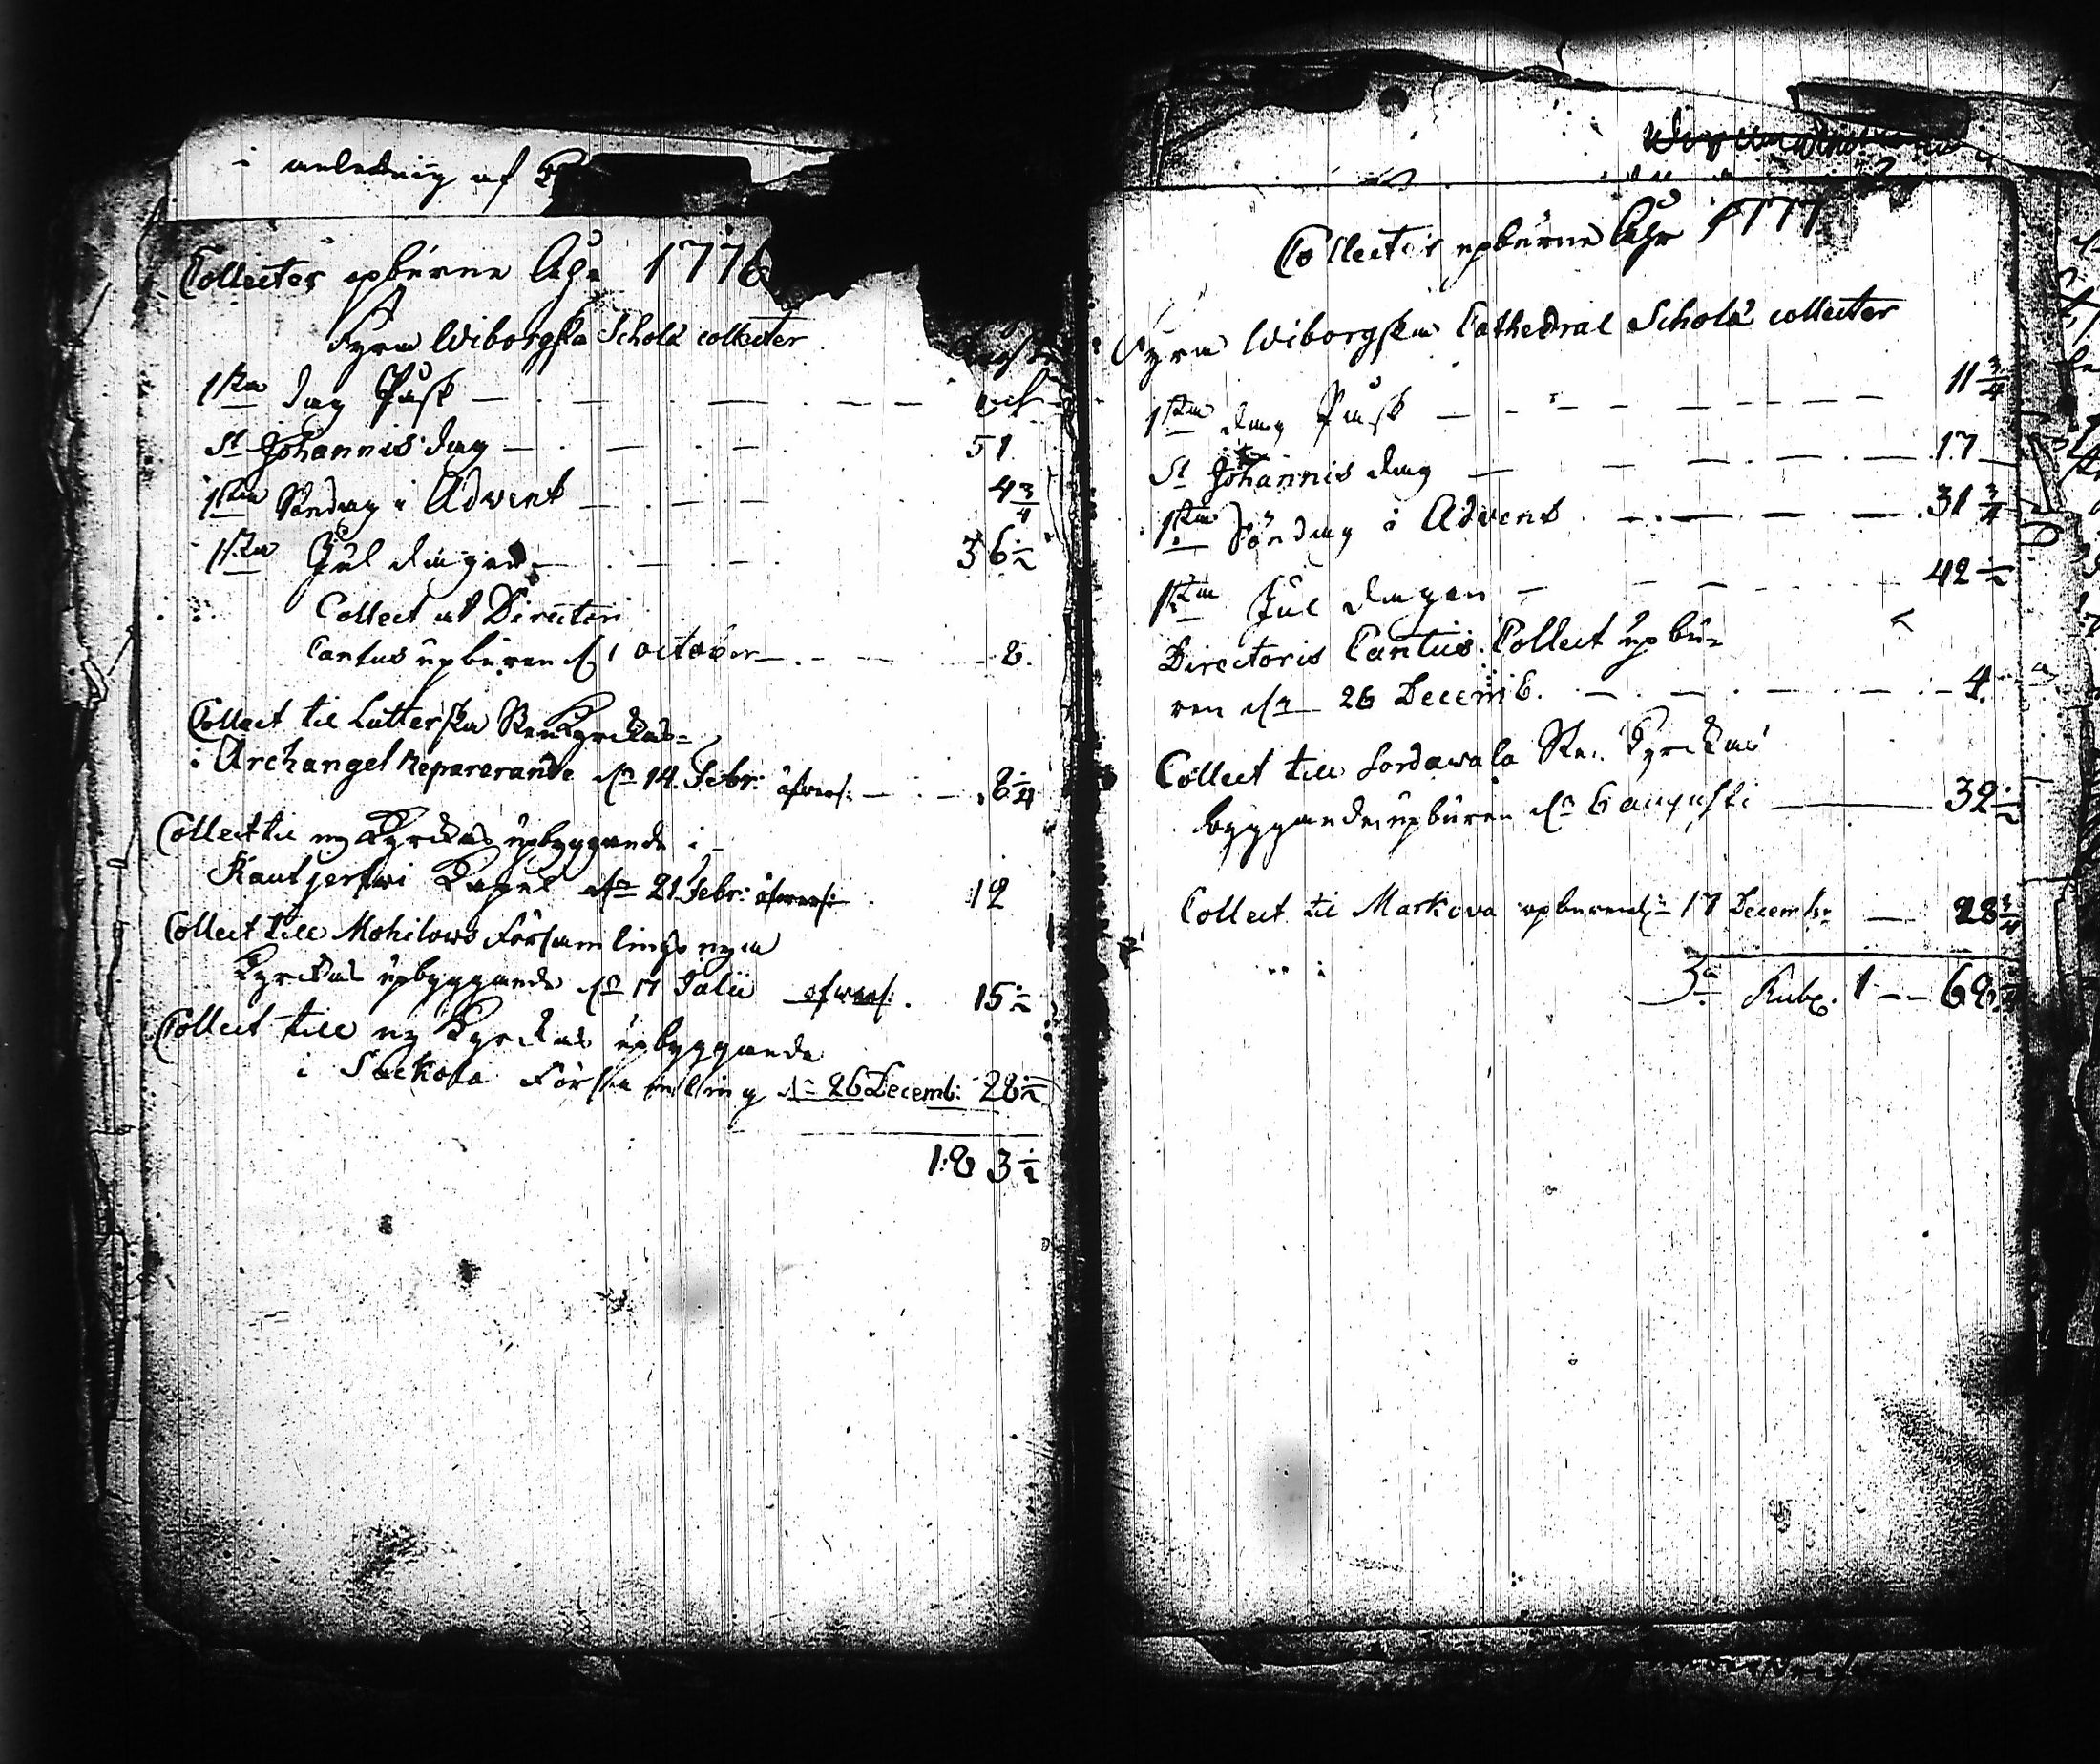 i anledning af
Collecter upburne Åhr 1776
Fyra Wiborgska Schola collecter
1sta dag Påsk
St Johannis dag 51
1sta Söndag i Advent 4 3/4
1sta Jul dagen 36 1/2
Collect at Directori
Cantus upburen d 1 october 8.
Collect til Lutterska Sten Kyrckas
i Archangel Reparerande dn 14. Febr: öfvers: 8 1/4
Collect til ny Kyrckas upbyggande i
Kautjerfwi Kapel dn 21 Febr: öfvers: 12
Collect till Mohilows Församlings nya
Kyrckas upbyggande dn 17 Julii öfvers: 15 1/2
Collect till ny Kyrckas upbyggande
i Sackola Församling dn 26 Decemb: 28 1/2
1:8 3 1/2
Collecter upburne Åhr 1777
Fyra Wiborgska Cathedral Schola collecter
1sta dag Påsk 11 3/4
St Johannis dag 17
1sta Söndag i Advent 31 3/4
1sta Jul dagen 42 1/2
Directoris Cantus Collect upbu-
ren dn 26 Decemb. 4
Collect till Sordawala Sten Kyrckas
byggande upburen dn 6 augusti 32 1/2
Collect til Markova upburen dn 17 Decembr 28 3/4
Sa Rub. 1 -- 68